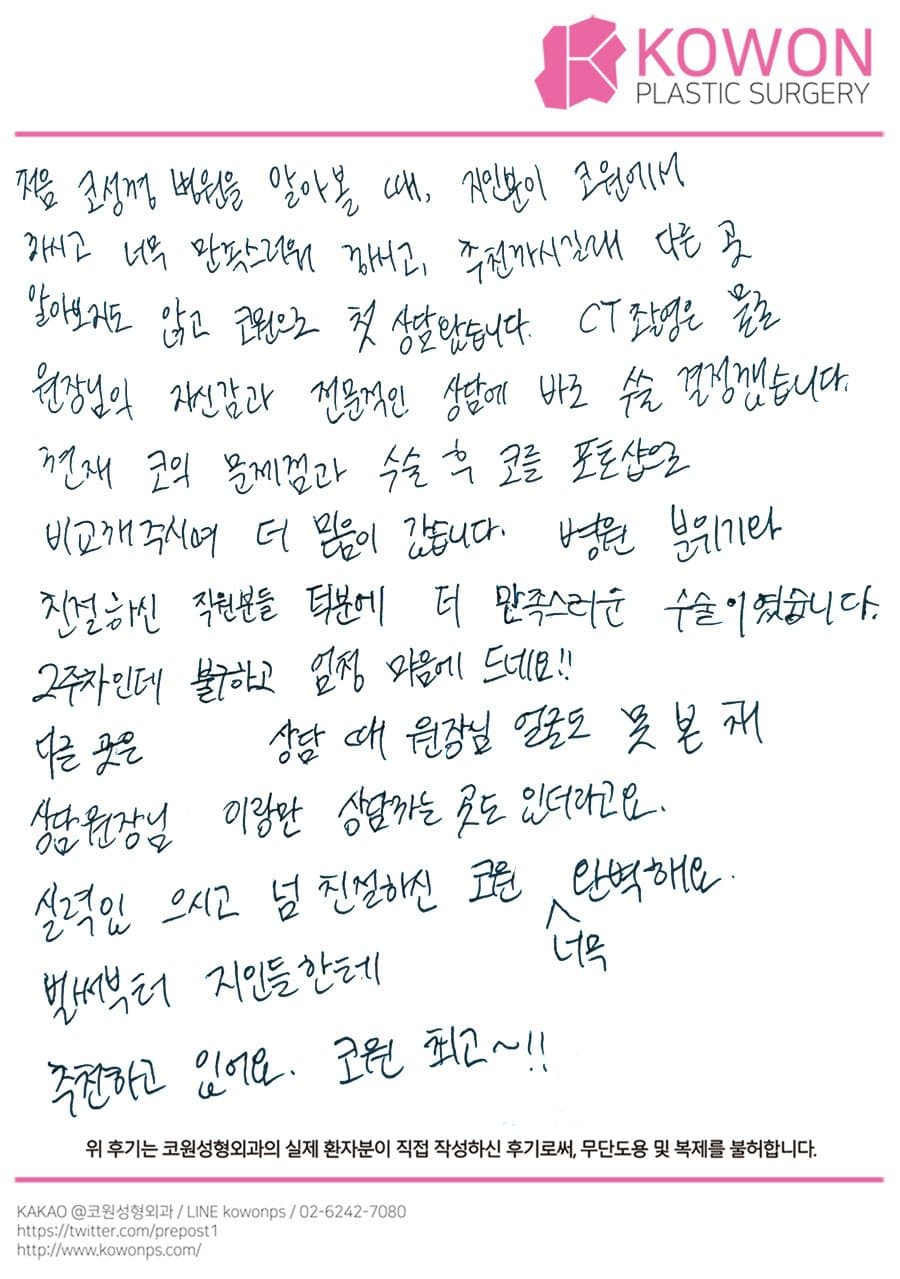 KOWON
PLASTIC SURGERY
처음 코성형 병원을 알아볼 때, 지인분이 코원에서
하시고 너무 만족스러워 하시고, 추천하시길래 다른 곳
알아보지도 않고 코원으로 첫 상담왔습니다. CT촬영은 물론
원장님의 자신감과 전문적인 상담에 바로 수술 결정했습니다.
현재 코의 문제점과 수술 후 코를 포토샵으로
비교해주시며 더 믿음이 갔습니다. 병원 분위기와
친절하신 직원분들 덕분에 더 만족스러운 수술이였습니다.
2주차인데 불구하고 엄청 마음에 드네요!!
다른 곳은 상담 때 원장님 얼굴도 못 본 채
상담원장님 이랑만 상담하는 곳도 있더라고요.
실력있 으시고 넘 친절하신 코원 너무 완벽해요.
벌써부터 지인들한테
추천하고 있어요. 코원 최고~!!
위 후기는 코원성형외과의 실제 환자분이 직접 작성하신 후기로써, 무단도용 및 복제를 불허합니다.
KAKAO @코원성형외과 / LINE kowonps / 02-6242-7080
https://twitter.com/prepost1
http://www.kowonps.com/